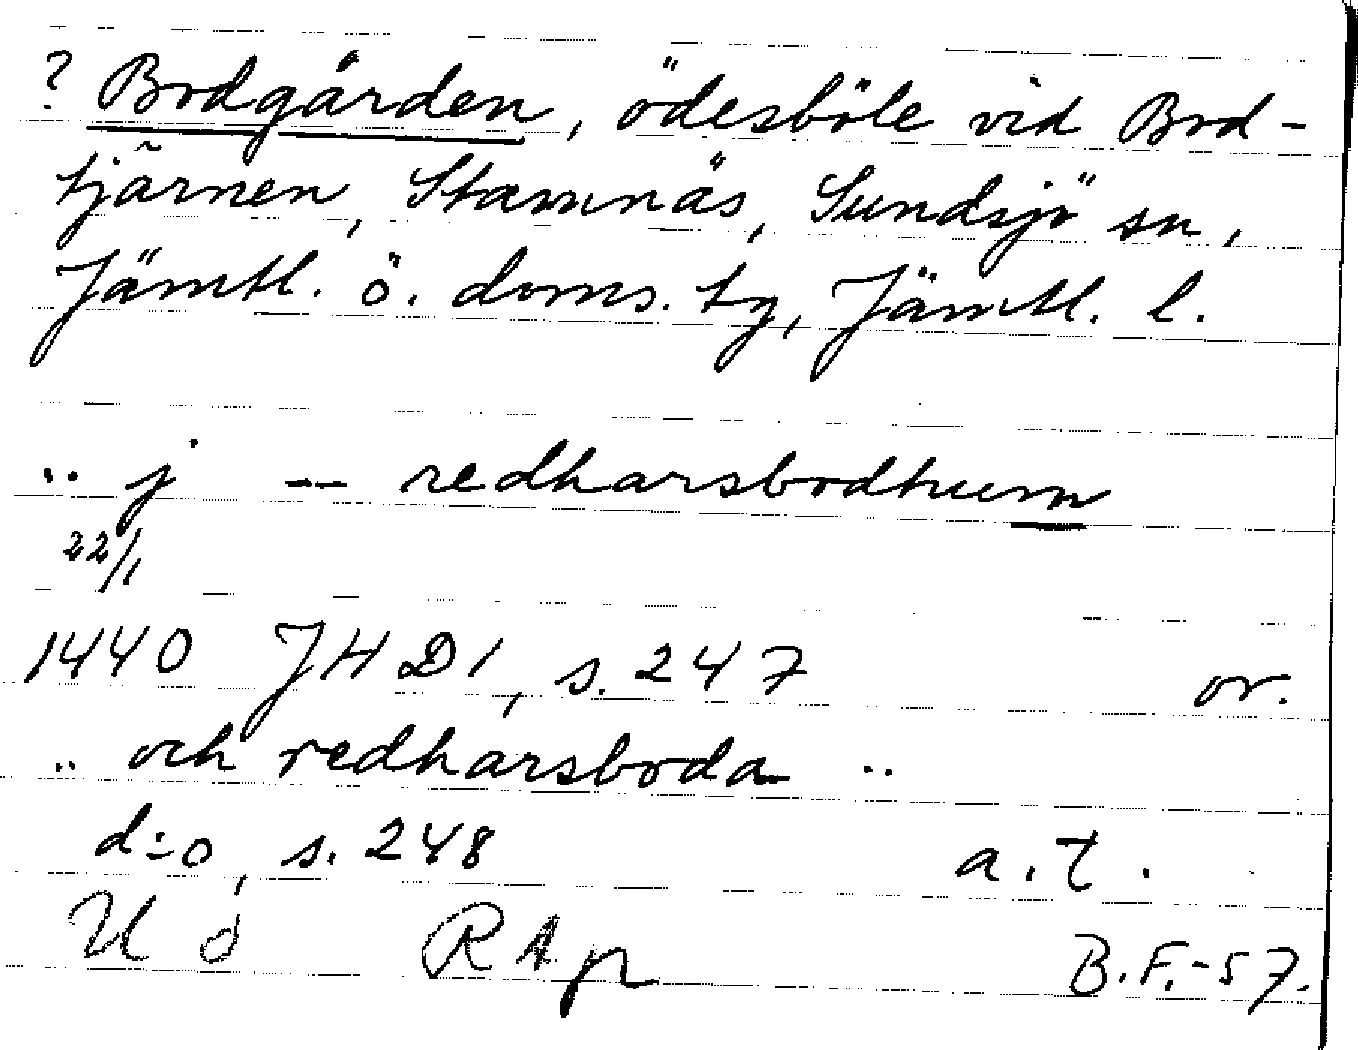 ? Bodgården, ödesböle vid Bod-
tjärnen, Stamnäs, Sundsjö sn,
Jämtl. ö. doms. tg, Jämtl. l.
.. j -- redharsbodhum
22/1
1440 JHD 1, s. 247 or.
.. och redharsboda ..
d:o, s. 248 a.t.
U ö RAp B.F.-57.